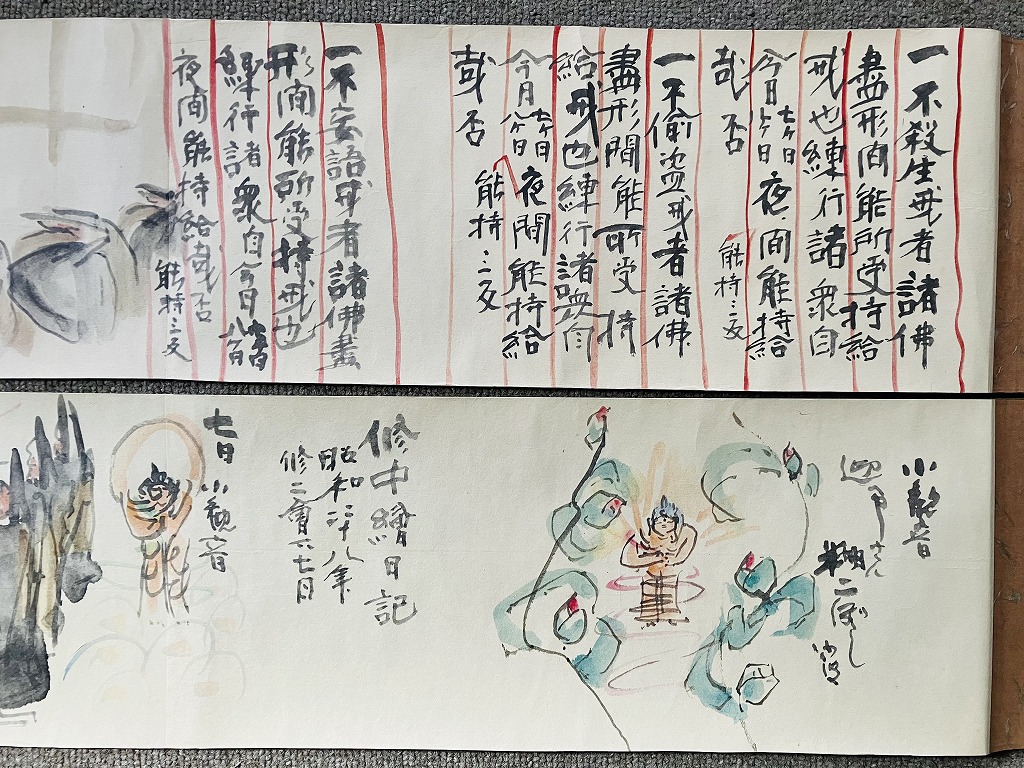 一不殺生戒者諸佛
盡形間能所受持給
戒也練行諸衆自
今月七ケ日八ケ日夜間能持給
哉否
能持三反
一不偸盗戒者諸佛
盡形間能所受持
給戒也練行諸衆自
今月七ケ日八ケ日夜間能持給
哉否
能持三反
一不妄語戒者諸佛盡
形間能所受持戒也
練行諸衆自今月
夜間能持給哉否
能持三反
小観音
迎
修中繪日記
昭和二十八年
修二會
七日
小観音